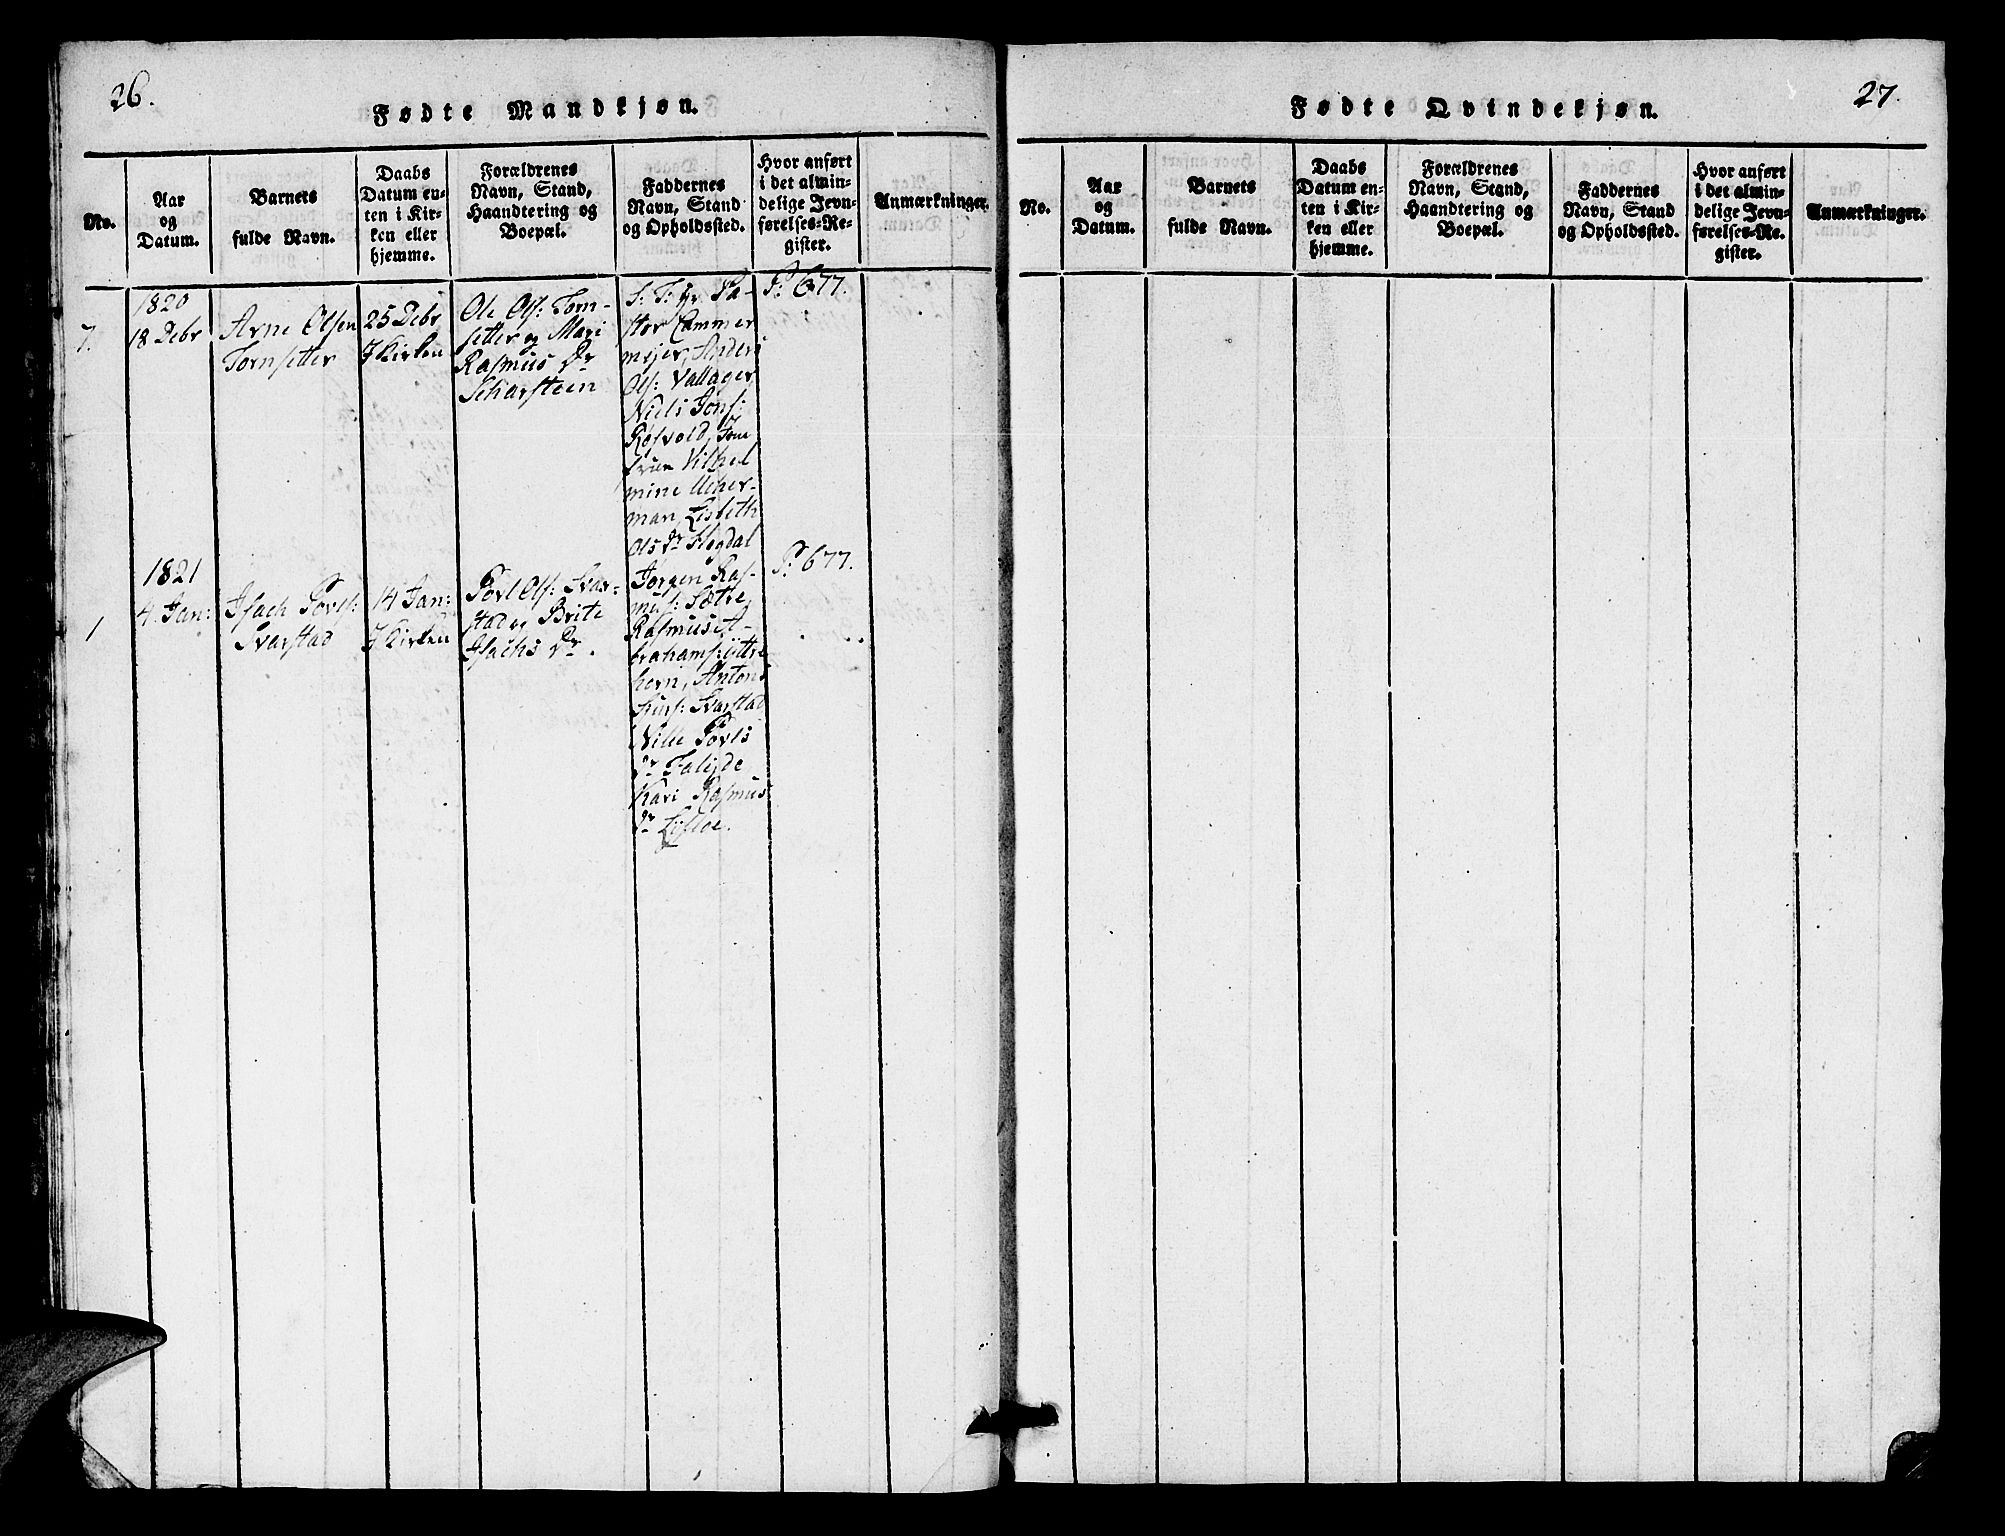 26.
Fødte Mandkjøn.
No.
Aar
og
Datum.
Barnets
fulde Navn.
Daabs
Datum en-
ten i Kir-
ken eller
hjemme.
Forældrenes
Navn, Stand,
Haandtering og
Boepæl.
Faddernes
Navn, Stand
og Opholdssted.
Hvor anført
i det almin-
delige Jevn-
førelses-Re-
gister.
Anmærkninger.
7.
1820
18 Debr
Arne Olsen
Tornsetter
25 Debr
J Kirken
Ole Ols: Torn-
setter og Mari
Rasmus Dr
Scharsteen
S: T: Hr. Pa-
stor Cammer
mejer, Anders
Ols: Vallager
Niels Jons:
Røsvold, Jom
fruen Vilhel
mine Ucher-
man, Lisbeth
Ols Dr Flogdal
P: 677.
1
1821
4 Jan:
Isach Povls:
Svarstad
14 Jan:
J Kirken
Povl Ols: Svar-
stad og Brite
Isachs Dr.
Jørgen Ras-
mus: Sætre
Rasmus A-
brahams: Yttre
horn, Antons
Svarstad
Nille Povls
Dr Faleide
Kari Rasmus
Dr
P: 677.
27.
Fødte Qvindekjøn.
No.
Aar
og
Datum.
Barnets
fulde Navn.
Daabs
Datum en-
ten i Kir-
ken eller
hjemme.
Forældrenes
Navn, Stand,
Haandtering og
Boepæl.
Faddernes
Navn, Stand
og Opholdssted.
Hvor anført
i det almin-
delige Jevn-
førelses-Re-
gister.
Anmærkninger.